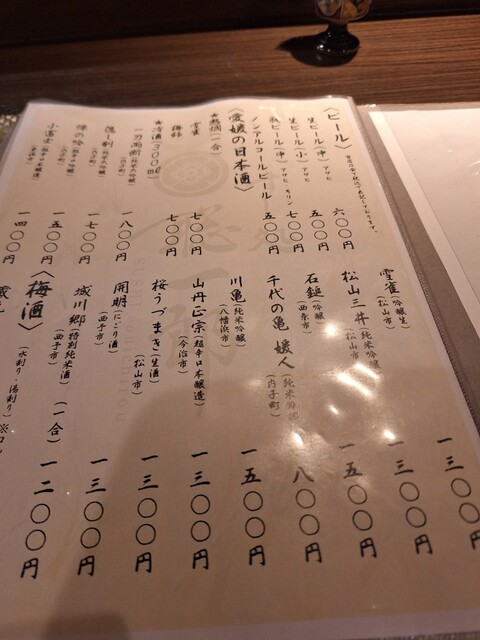 〈ビール〉
生ビール(中) アサヒ 六〇〇円
生ビール(小) アサヒ 五〇〇円
瓶ビール(中) アサヒ・キリン 七〇〇円
ノンアルコールビール 五〇〇円
〈愛媛の日本酒〉
★熱燗(一合)
雪雀 七〇〇円
梅錦 七〇〇円
★清酒(300ml)
一刀両断(純米大吟醸)(内子町) 一八〇〇円
隠し剣(純米吟醸) 一七〇〇円
一五〇〇円
小富士(超辛口本醸造) 一四〇〇円
雪雀(吟醸生)(松山市) 一三〇〇円
松山三井(純米吟醸)(松山市) 一三〇〇円
石鎚(吟醸)(西条市) 一五〇〇円
千代の亀 媛人(純米吟醸)(内子町) 八〇〇円
川亀(純米吟醸)(八幡浜市) 一五〇〇円
山丹正宗(超辛口本醸造)(今治市) 一三〇〇円
桜うづまき(生酒)(松山市) 一三〇〇円
開明(にごり酒)(西予市) 一三〇〇円
城川郷(特別純米酒)(西予市)(一合) 一二〇〇円
〈梅酒〉
(水割り・湯割り)